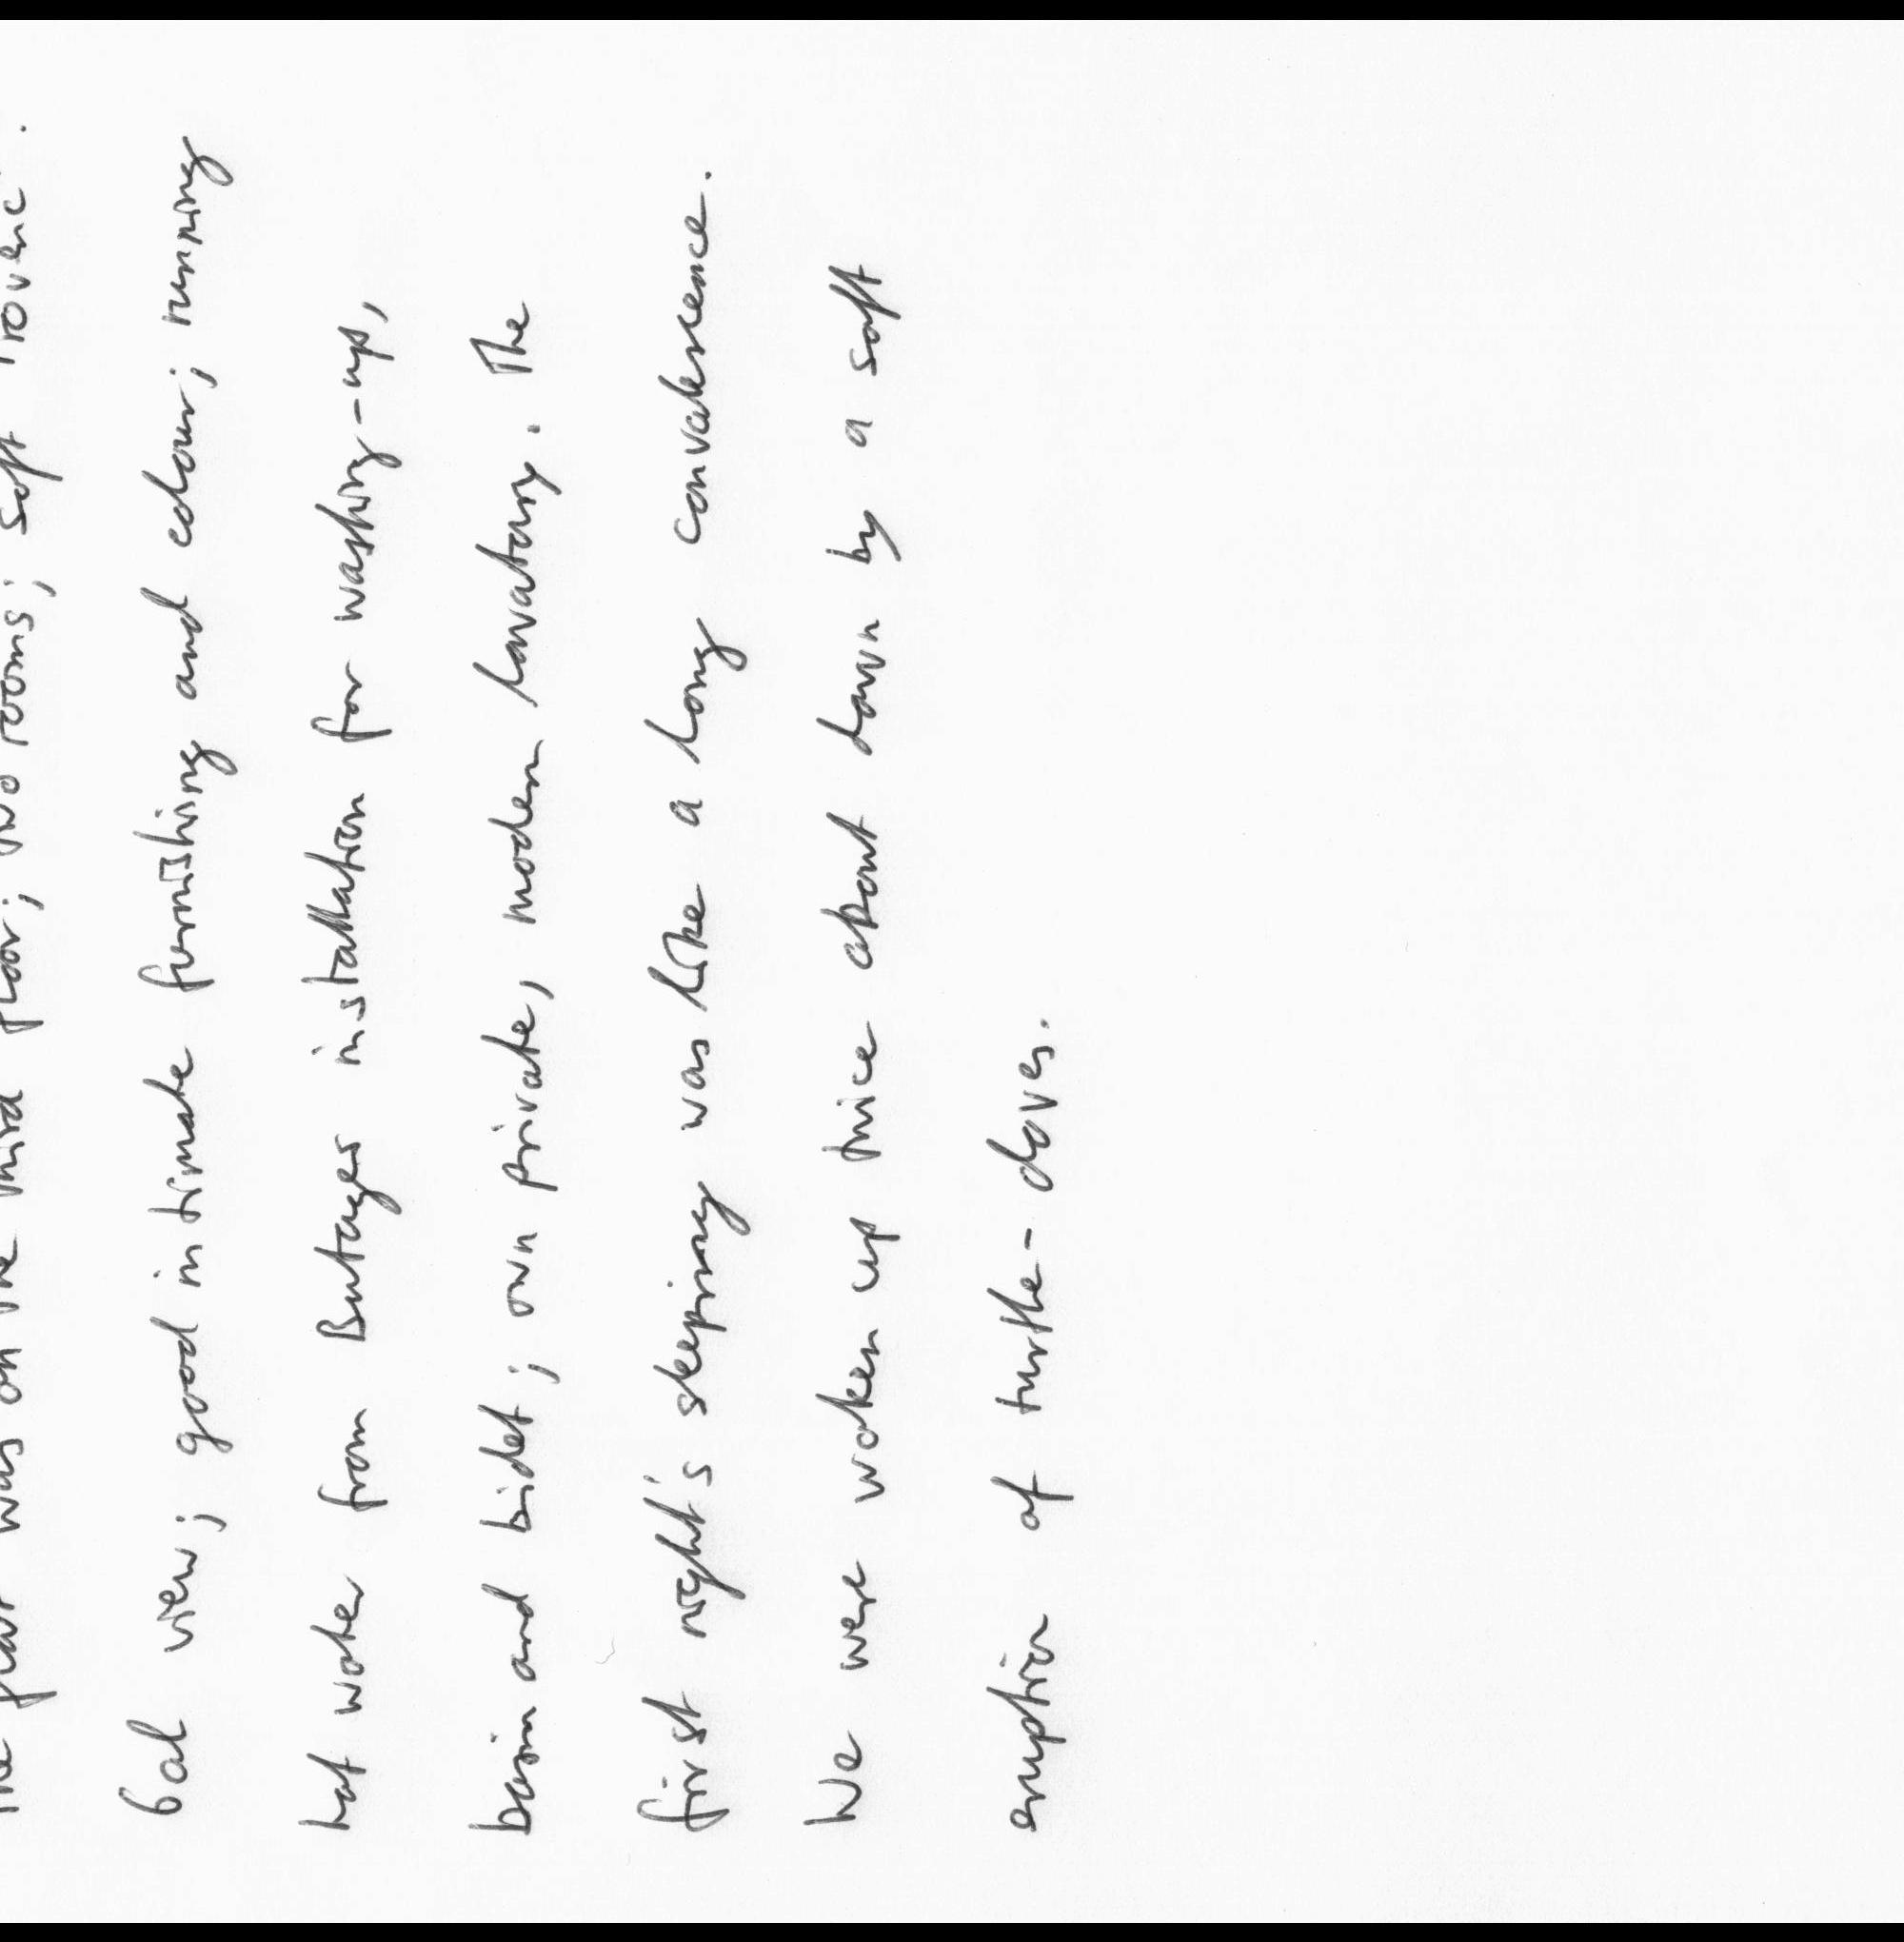 The flat was on the third floor; two rooms; soft Provenc-
bal view; good intimate furnishing and colour; running
hot water from Butages installation for washing-up,
basin and bidet; own private, modern lavatory. The
first night's sleeping was like a long convalescence.
We were woken up twice about dawn by a soft
eruption of turtle-doves.